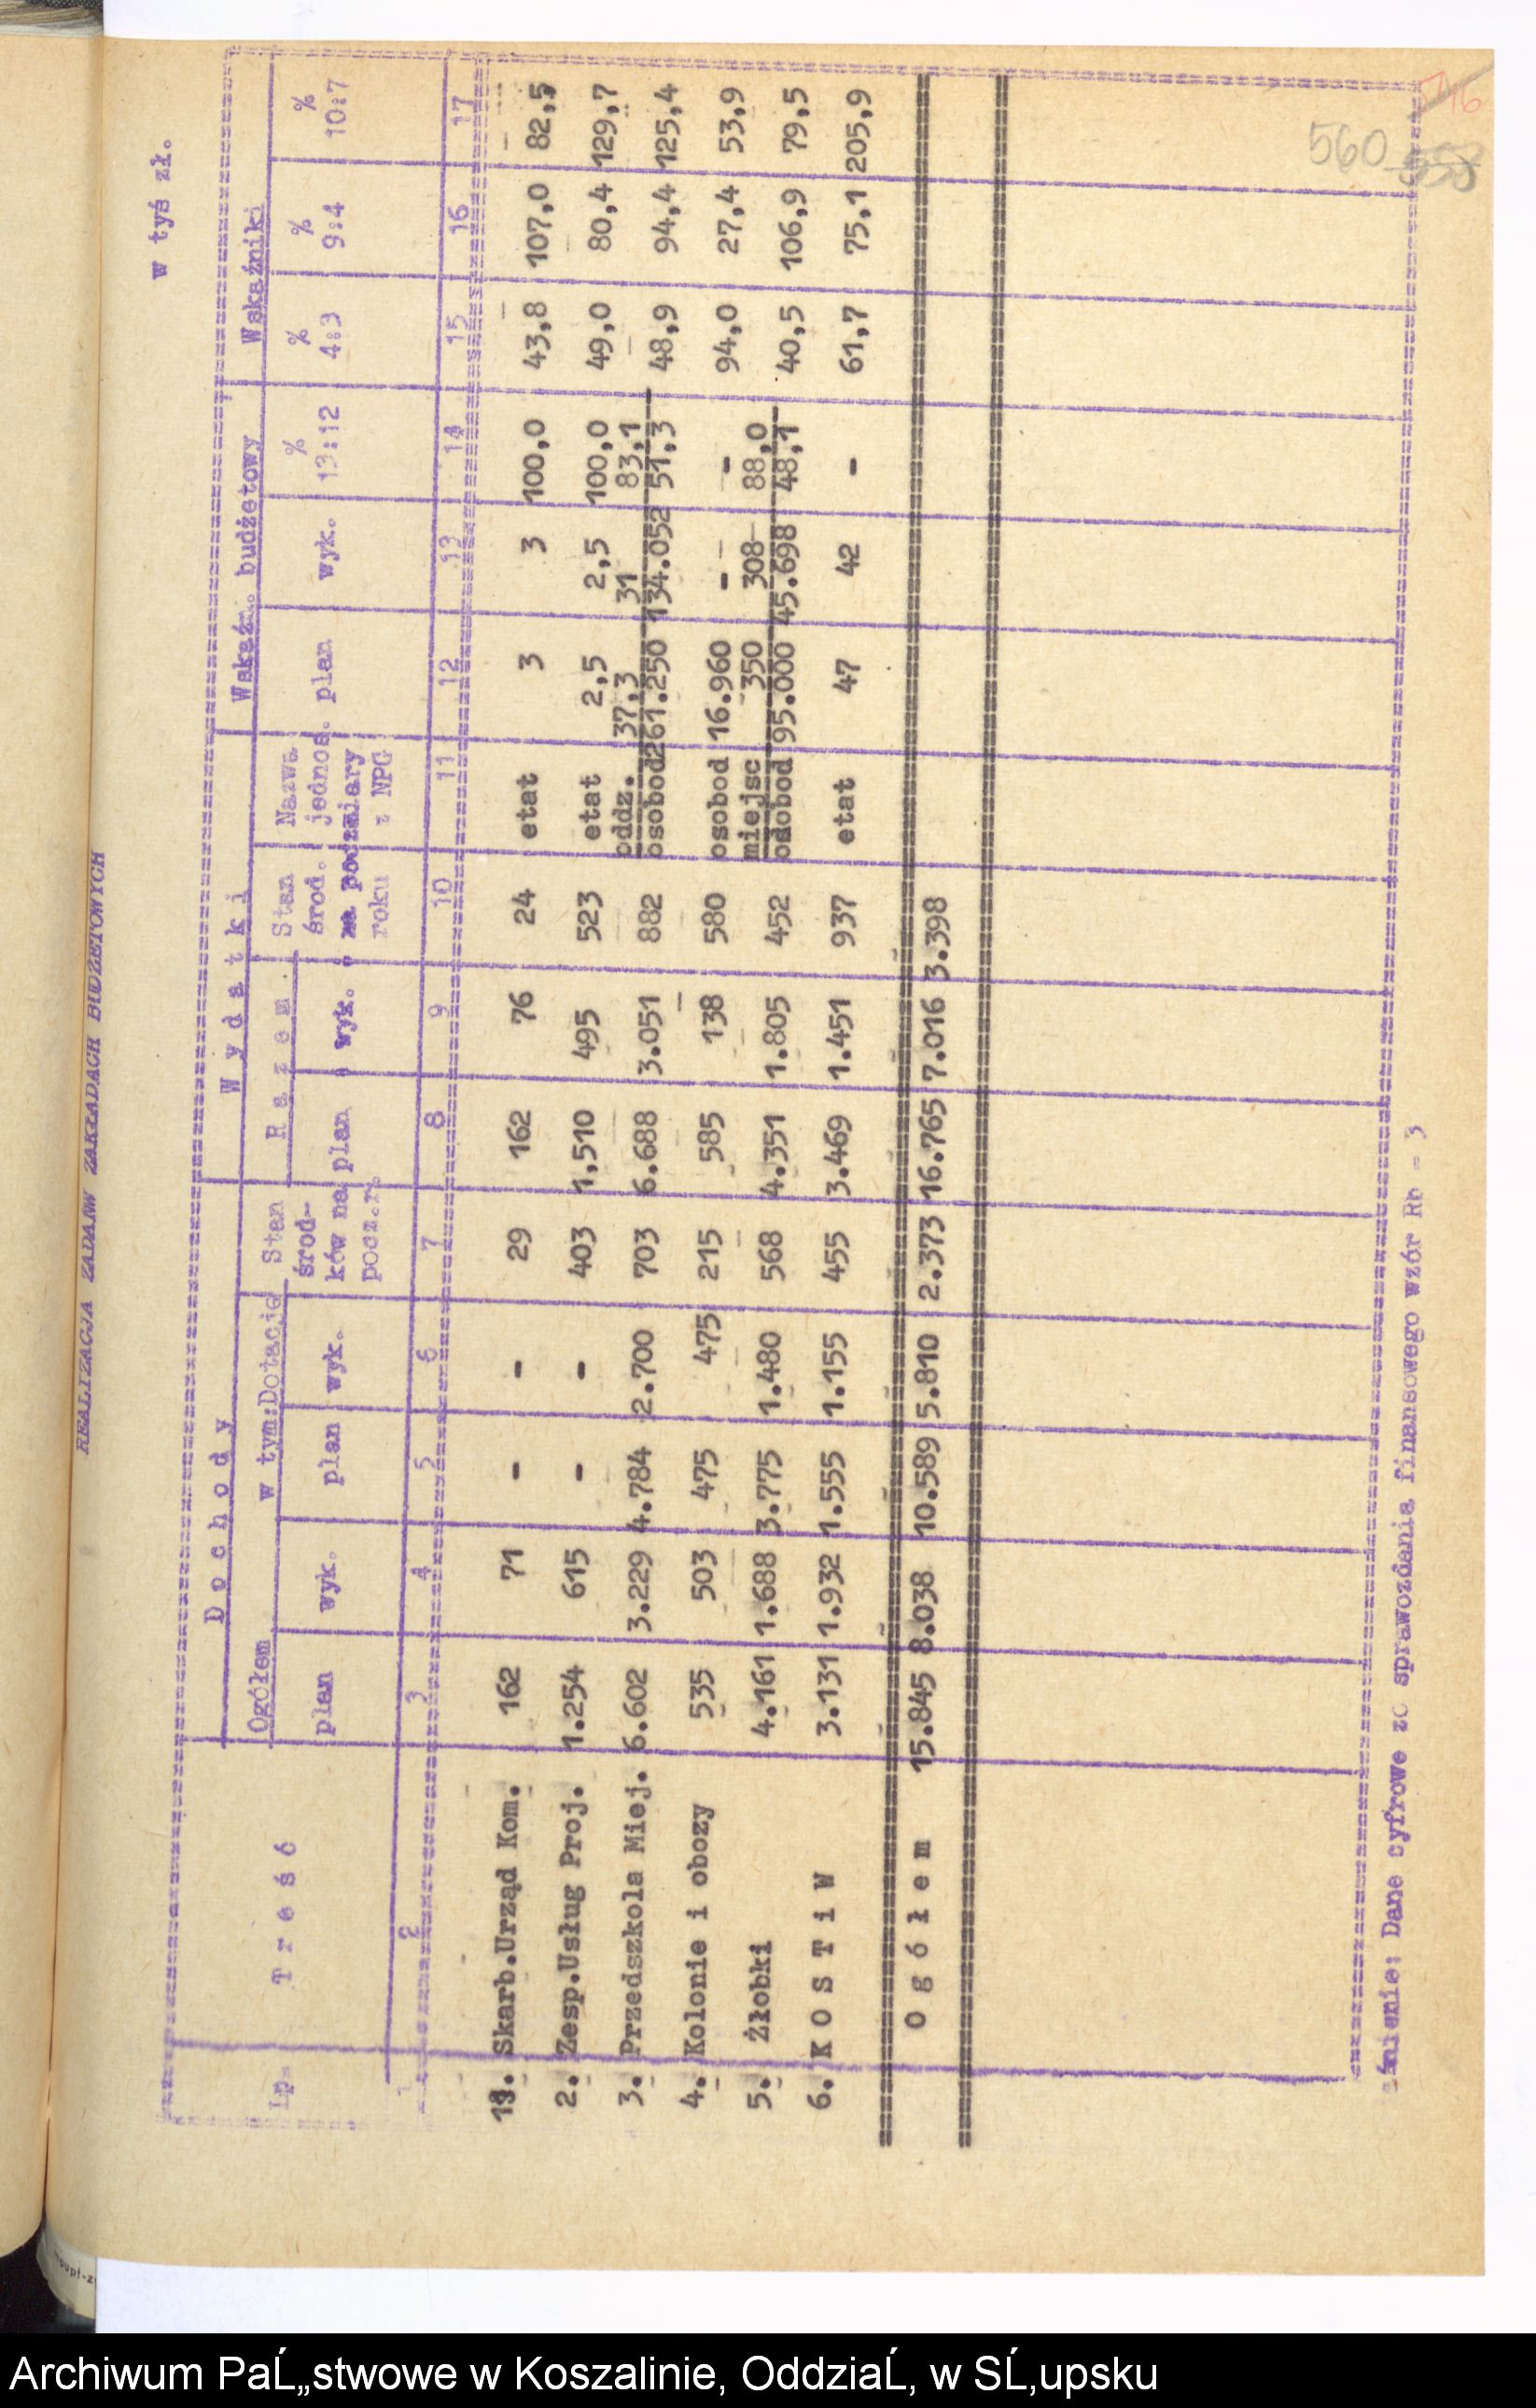 REALIZACJA ZADAŃ W ZAKŁADACH BUDŻETOWYCH
w tyś zł.
Lp. T r e ś ć D o c h o d y W y d a t k i Wskaźn. budżetowy Wskaźniki
Ogółem w tym:Dotacje Stan środ-ków na pocz.r. R a z e m Stan środ. na pocz. roku Nazwa jednos. miary z NPG
plan wyk. plan wyk. plan wyk. plan wyk. % 13:12 % 4:3 % 9:4 % 10:7
1 2 3 4 5 6 7 8 9 10 11 12 13 14 15 16 17
1. Skarb.Urząd Kom. 162 71 - - 29 162 76 24 etat 3 3 100,0 43,8 107,0 82,5
2. Zesp.Usług Proj. 1.254 615 - - 403 1,510 495 523 etat 2,5 2,5 100,0 49,0 80,4 129,7
oddz. 37,3 31 83,1
3. Przedszkola Miej. 6.602 3.229 4.784 2.700 703 6.688 3.051 882 osobod 261.250 134.052 51,3 48,9 94,4 125,4
4. Kolonie i obozy 535 503 475 475 215 585 138 580 osobod 16.960 - - 94,0 27,4 53,9
miejsc 350 308 88,0
5. Żłobki 4.161 1.688 3.775 1.480 568 4.351 1.805 452 odobod 95.000 45.698 48,1 40,5 106,9 79,5
6. K O S T i W 3.131 1.932 1.555 1.155 455 3.469 1.451 937 etat 47 42 - 61,7 75,1 205,9
O g ó ł e m 15.845 8.038 10.589 5.810 2.373 16.765 7.016 3.398
Dane cyfrowe ze sprawozdania finansowego wzór Rb - 3
560
Archiwum PaĹ„stwowe w Koszalinie, OddziaĹ‚ w SĹ‚upsku